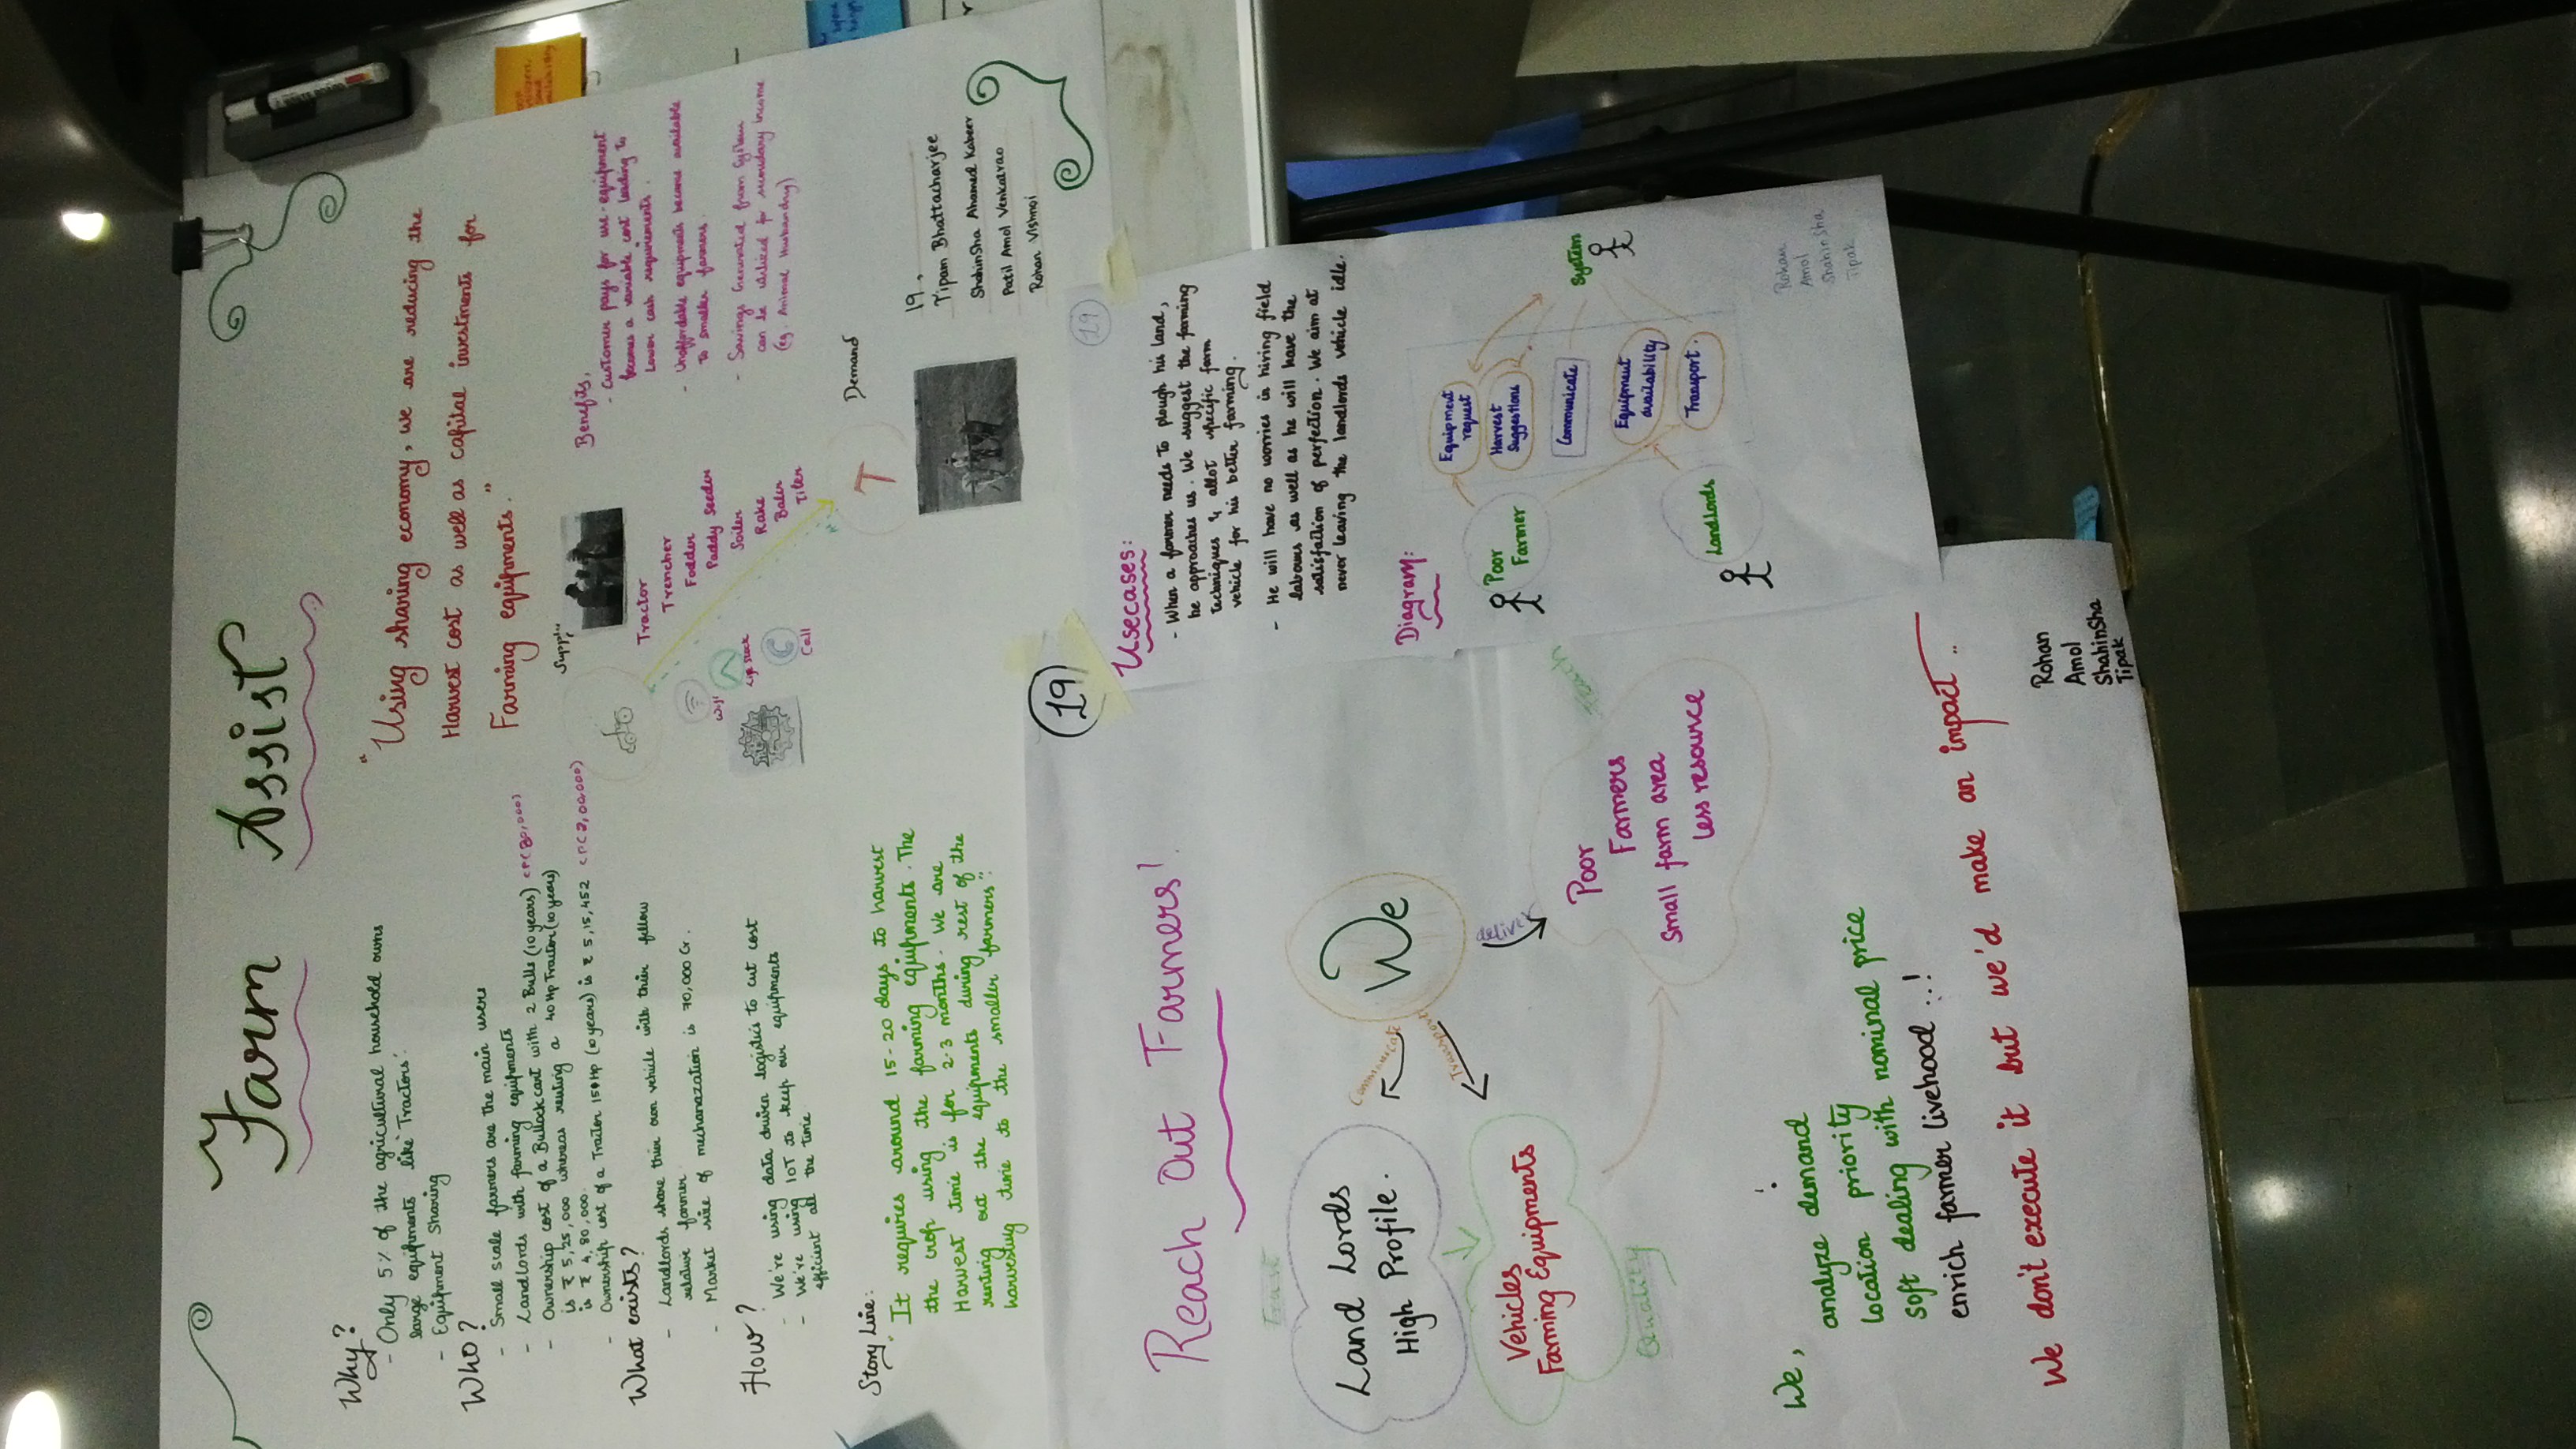 Farm Assist
Why?
- Only 5% of the agricultural household owns
large equipments like 'Tractors'.
- Equipment Sharing
Who?
- Small scale farmers are the main users
- Landlords with farming equipments
- Ownership cost of a Bullock cart with 2 Bulls (10 years)
is ₹ 5,25,000 whereas renting a 40 Hp Tractor (10 years)
is ₹ 4,80,000.
- Ownership cost of a Tractor Hp (10 years) is ₹ 5,15,452
What exists?
- Landlords share thier own vehicle with thier fellow
relative farmer.
- Market size of mechanazation is 70,000 Cr.
How?
- We're using data driven logistics to cut cost
- We're using IOT to keep our equipments
efficient all the time
Story Line:
"It requires around 15-20 days to harvest
the crop using the farming equipments. The
Harvest time is for 2-3 months. We are
renting out the equipments during rest of the
harvesting time to the smaller farmers".
"Using sharing economy, we are reducing the
Harvest cost as well as capital investments for
Farming equipments."
Supply
Tractor
Trencher
Fodder
Paddy Seeder
Soiler
Rake
Baler
Tiler
Wifi
Call
Benefits,
- Customer pays for use-equipment
becomes a variable cost leading to
Lower cash requirements.
- Unaffordable equipments became available
to smaller farmers.
- Savings Generated from System
can be utilized for secondary income
(eg. Animal Husbandry)
T
Demand
19.
Tipam Bhattacharjee
ShahinSha Ahamed Kabeer
Patil Amol Venkatrao
Rohan Vishnoi
19
Reach Out Farmers!
Trust
Land Lords
High Profile.
We
Communicate
Transport
deliver
Vehicles
Farming Equipments
Quality
Poor
Farmers
Small farm area
less resource
We,
analyze demand
location priority
soft dealing with nominal price
enrich farmer livehood ..!
We don't execute it but we'd make an impact ..
Rohan
Amol
ShahinSha
Tipak
19
Usecases:
- When a farmer needs to plough his land,
he approaches us. We suggest the farming
techniques & allot specific farm
vehicle for his better farming.
- He will have no worries in hiring field
labours as well as he will have the
satisfaction of perfection. We aim at
never leaving the landlords vehicle idle.
Diagram:
Poor
Farmer
Equipment
request
Harvest
Suggestions
Communicate
Equipment
availability
Transport.
System
LandLords
Rohan
Amol
ShahinSha
Tipak